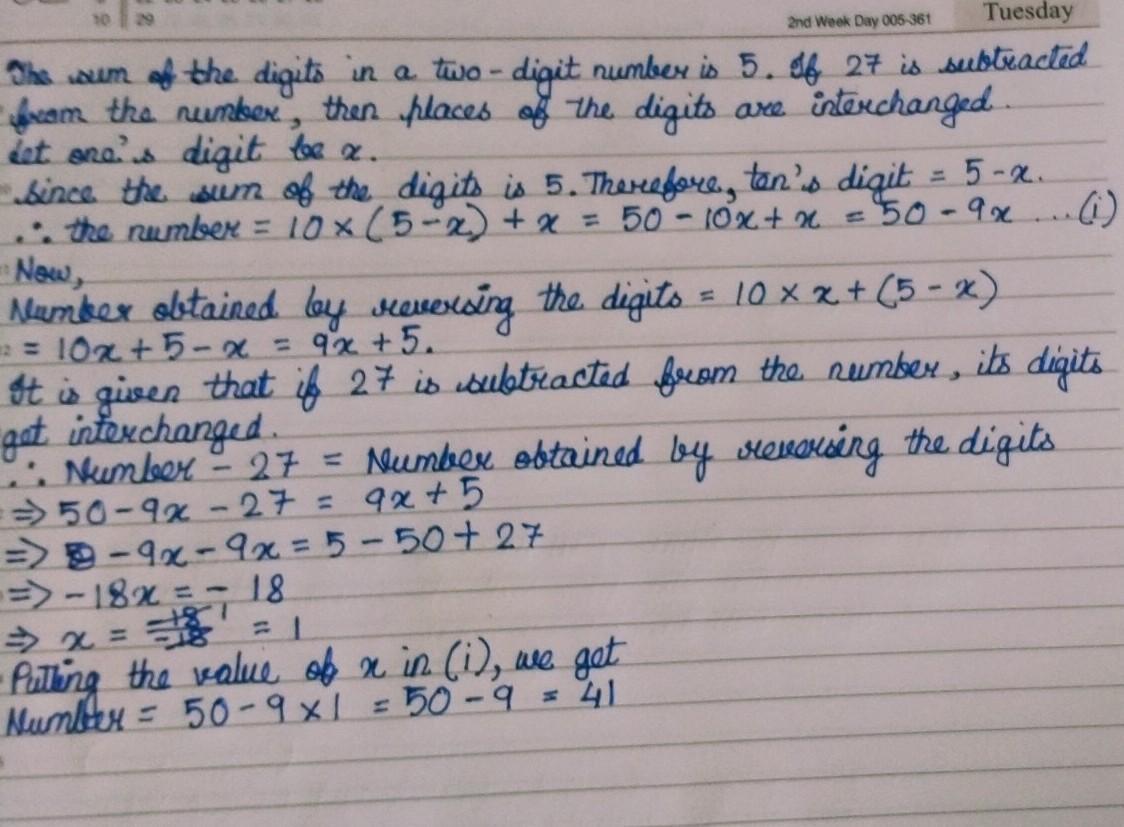 10 29
2nd Week Day 005-361 Tuesday
The sum of the digits in a two-digit number is 5. If 27 is subtracted
from the number, then places of the digits are interchanged.
Let one's digit be x.
Since the sum of the digits is 5. Therefore, ten's digit = 5-x.
∴ the number = 10 × (5-x) + x = 50 - 10x + x = 50 - 9x ... (i)
Now,
Number obtained by reversing the digits = 10 × x + (5 - x)
= 10x + 5 - x = 9x + 5.
It is given that if 27 is subtracted from the number, its digits
get interchanged.
∴ Number - 27 = Number obtained by reversing the digits
⇒ 50 - 9x - 27 = 9x + 5
⇒ - 9x - 9x = 5 - 50 + 27
⇒ -18x = - 18
⇒ x = -18/-18 1 = 1
Putting the value of x in (i), we get
Number = 50 - 9 × 1 = 50 - 9 = 41